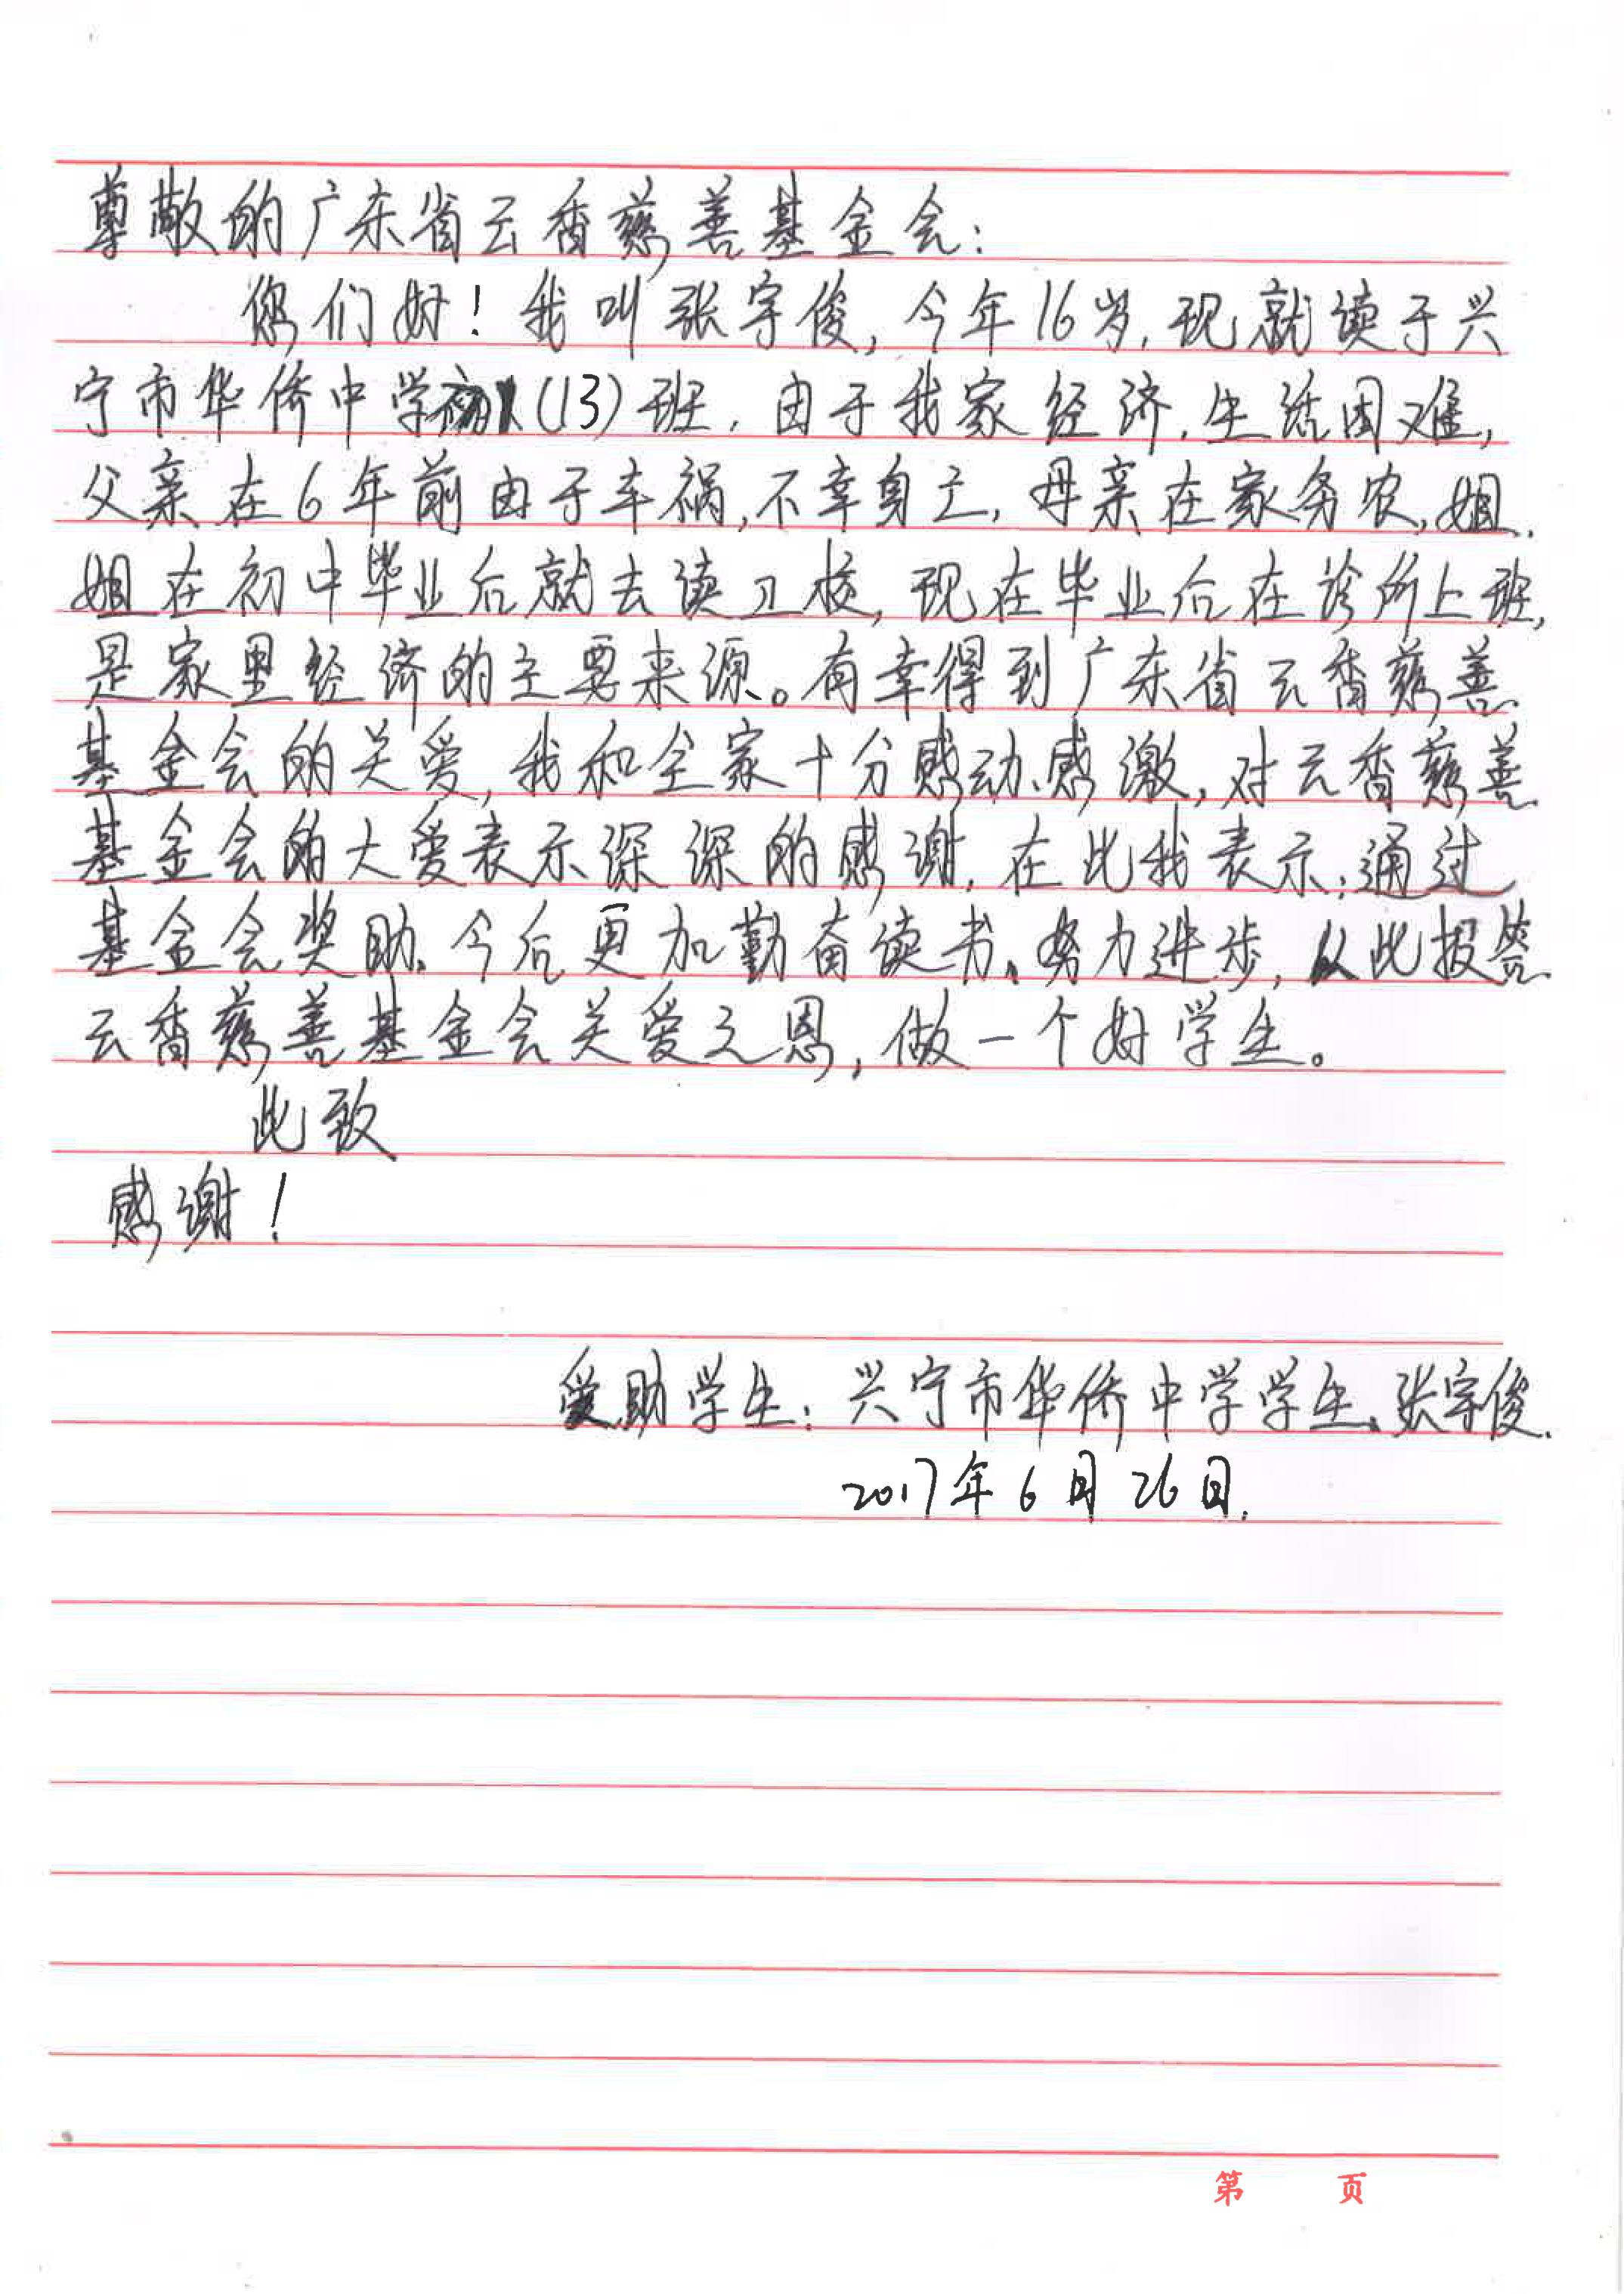 尊敬的广东省云香慈善基金会：
您们好！我叫张宇俊，今年16岁，现就读于兴
宁市华侨中学初(13)班，由于我家经济，生活困难，
父亲在6年前由于车祸，不幸身亡，母亲在家务农，姐
姐在初中毕业后就去读卫校，现在毕业后在诊所上班，
是家里经济的主要来源。有幸得到广东省云香慈善
基金会的关爱，我和全家十分感动、感激，对云香慈善
基金会的大爱表示深深的感谢，在此我表示：通过
基金会奖助，今后更加勤奋读书、努力进步，以此报答
云香慈善基金会关爱之恩，做一个好学生。
此致
感谢！
受助学生：兴宁市华侨中学学生、张宇俊.
2017年6月26日.
第 页